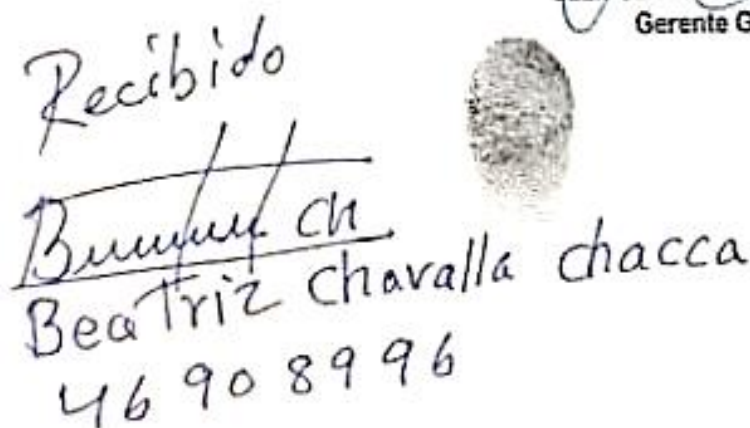 Gerente G
Recibido
Beatriz Chavalla chacca
46908996